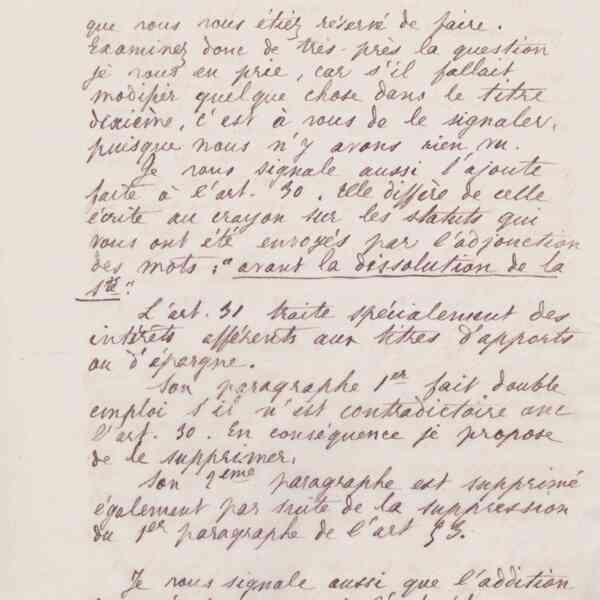 que vous vous étiez réservé de faire.
Examinez donc de très-près la question
je vous en prie, car s'il fallait
modifier quelque chose dans le titre
dixième, c'est à vous de le signaler,
puisque nous n'y avons rien vu.
Je vous signale aussi l'ajoute
faite à l'art. 30. Elle diffère de celle
écrite au crayon sur les statuts qui
vous ont été envoyés par l'adjonction
des mots : "avant la dissolution de la
Sté".
L'art. 31 traite spécialement des
intérêts afférents aux titres d'apports
ou d'épargne.
Son paragraphe 1er fait double
emploi s'il n'est contradictoire avec
l'art. 30. En conséquence je propose
de le supprimer.
Son 2ème paragraphe est supprimé
également par suite de la suppression
du 1er paragraphe de l'art 33.
Je vous signale aussi que l'addition